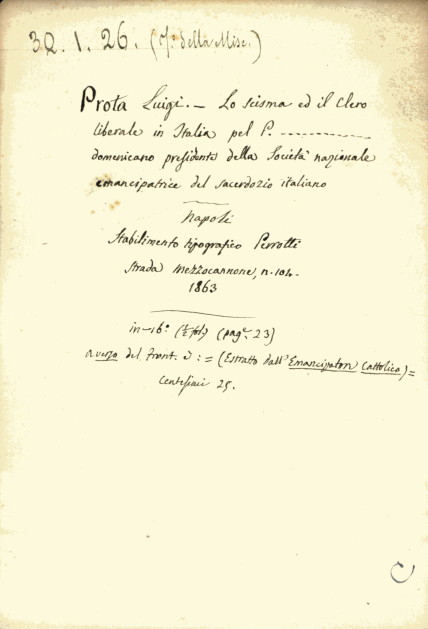 32.1.26. (7º della Misc.)
Prota Luigi. — Lo scisma ed il Clero
liberale in Italia pel P. ------------
domenicano presidente della Società nazionale
emancipatrice del sacerdozio italiano
Napoli
Stabilimento tipografico Perrotti
Strada Mezzocannone, n. 104.
1863
in-16º (½ fol.) (pag.e 23)
a verzo del front. è : = (Estratto dall' Emancipatore Cattolico) =
Centesimi 25.